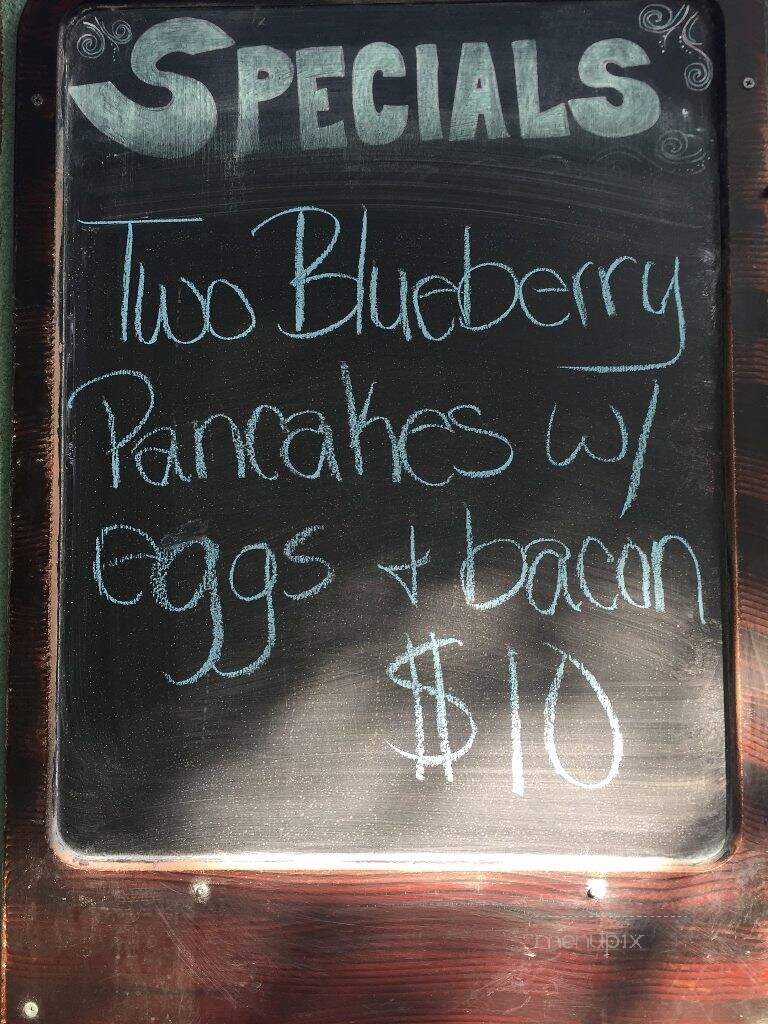 SPECIALS
Two Blueberry
Pancakes w/
eggs + bacon
$10
menupix